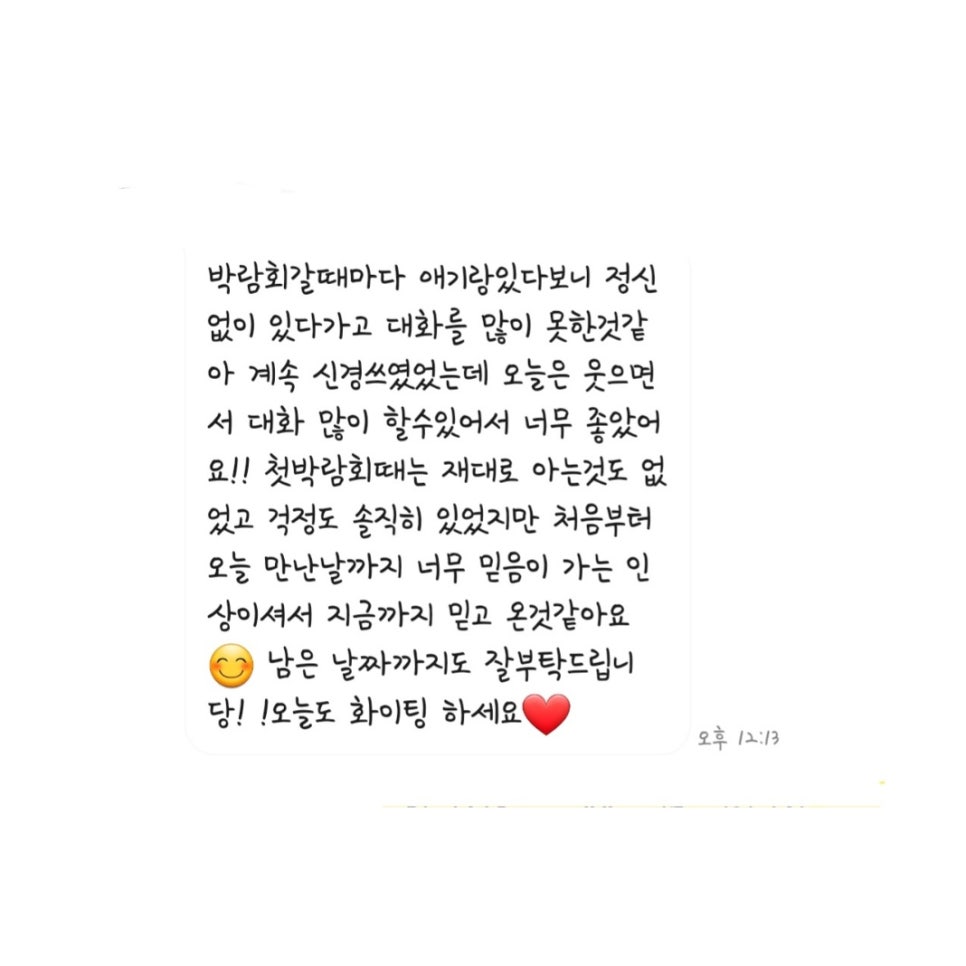 박람회갈때마다 애기랑있다보니 정신
없이 있다가고 대화를 많이 못한것같
아 계속 신경쓰였었는데 오늘은 웃으면
서 대화 많이 할수있어서 너무 좋았어
요!! 첫박람회때는 재대로 아는것도 없
었고 걱정도 솔직히 있었지만 처음부터
오늘 만난날까지 너무 믿음이 가는 인
상이셔서 지금까지 믿고 온것같아요
😊 남은 날짜까지도 잘부탁드립니
당! !오늘도 화이팅 하세요❤️
오후 12:13